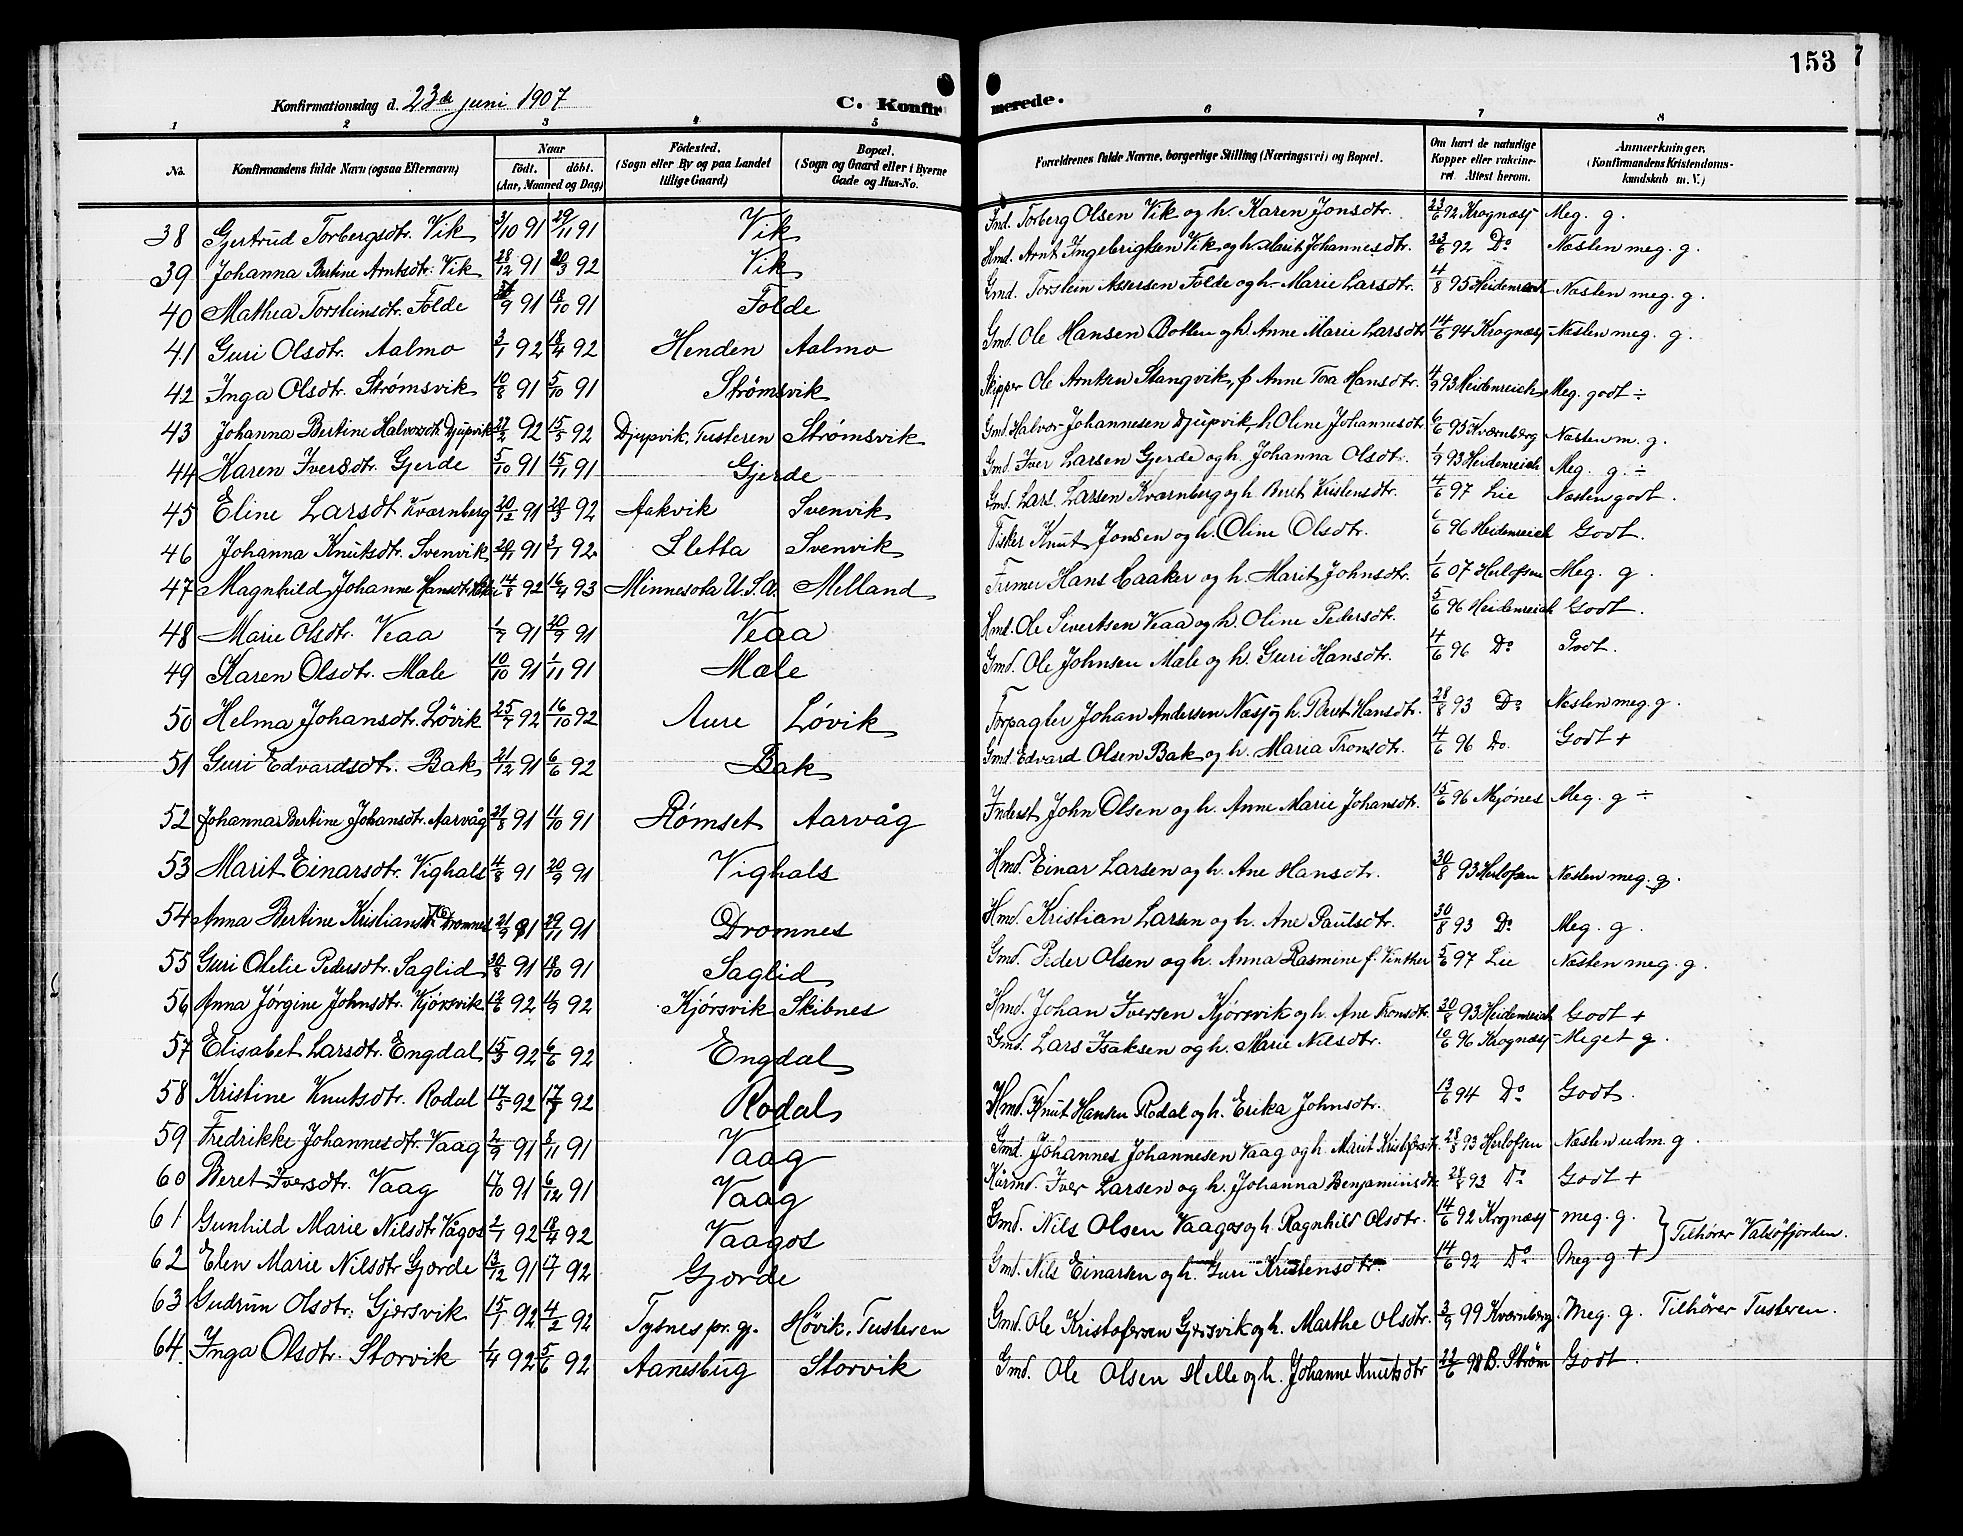 153
Konfirmationsdag d. 23de juni 1907 C. Konfirmerede.
1 2 3 4 5 6 7 8
No. Konfirmandens fulde Navn (ogsaa Efternavn) Naar födt. döbt. (Aar, Maaned og Dag) Födested. (Sogn eller By og paa Landet tillige Gaard) Bopæl. (Sogn og Gaard eller i Byerne Gade og Hus-No. Forældrenes fulde Navne, borgerlige Stilling (Næringsvei) og Bopæl. Om havt de naturlige Kopper eller vakcineret Attest herom. Anmærkninger. (Konfirmandens Kristendomskundskab m. V.)
38 Gjertrud Torbergsdtr. Vik 3/10 91 29/11 91 Vik Ind. Torberg Olsen Vik og h. Karen Jonsdtr. 23/6 92 Krognæs Meg. g.
39 Johanna Bertine Arntsdtr. Vik 28/12 91 20/3 92 Vik Hmd. Arnt Ingebrigtsen Vik og h. Marit Johannesdtr. 23/6 92 Do Næsten meg. g.
40 Mathea Torsteinsdtr. Folde 9 91 18/10 91 Folde Gmd. Torstein Assersen Folde og h. Marie Larsdtr. 4/8 95 Heidenreich Næsten meg. g.
41 Guri Olsdtr. Aalmo 3/1 92 18/4 92 Henden Aalmo Gmd. Ole Hansen Botten og h. Anne Marie Larsdtr 14/6 94 Krognæs Næsten meg. g.
42 Inga Olsdtr. Strømsvik 10/8 91 5/10 91 Strømsvik Skipper Ole Arntsen Stangvik, f Anne Tora Hansdtr. 4/9 93 Heidenreich Meg. godt ÷
43 Johanna Bertine Halvorsdtr. Djupvik 22/2 92 15/5 92 Djupvik, Tusteren Strømsvik Gmd. Halvor Johannesen Djupvik, h Oline Johannesdtr 6/6 95 Kværnberg Næsten m. g.
44 Karen Iversdtr. Gjerde 5/10 91 15/11 91 Gjerde Gmd. Iver Larsen Gjerde og h. Johanna Olsdtr. 4/9 93 Heidenreich Meg. g. ÷
45 Eline Larsdt Kværnberg 20/12 91 20/3 92 Aakvik Svenvik Gmd. Lars Larsen Kværnberg og h. Berit Kristensdtr. 4/6 97 Lie Næsten godt.
46 Johanna Knutsdtr. Svenvik 20/11 91 3/1 92. Sletta Svenvik Fisker Knut Jonsen og h. Oline Olsdtr. 6/6 96 Heidenreich Godt.
47 Magnhild Johanne Hansdtr. 14/8 92 16/4 93 Minnesota U.S.A. Melland Frmer Hans Caaker og h. Marit Johnsdtr. 1/6 07 Herlofsen Meg. g.
48 Marie Olsdtr. Veaa 1/7 91 20/9 91 Veaa Hmd. Ole Sivertsen Veaa og h. Oline Pedersdtr. 5/6 96 Heidenreich Godt.
49 Karen Olsdtr. Male 10/10 91 1/11 91 Male Gmd. Ole Johnsen Male og h. Guri Hansdtr. 4/6 96 Do Godt.
50 Helma Johansdtr. Løvik 25/7 92 16/10 92 Aure Løvik Forpagter Johan Andersen Næss og h. Berit Hansdtr. 28/8 93 Do Næsten meg. g.
51 Guri Edvardsdtr. Bak 21/12 91 6/6 92 Bak Gmd. Edvard Olsen Bak og h. Maria Tronsdtr. 4/6 96 Do. Godt +
52 Johanna Bertine Johansdtr. Aarvåg 21/8 91 4/10 91 Rømset Aarvåg Inderst John Olsen og h. Anne Marie Johansdtr. 15/6 96 Mjönes Meg. g ÷
53 Marit Einarsdtr. Vighals 4/8 91 20/9 91 Vighals Hmd. Einar Larsen og h. Ane Hansdtr. 30/8 93 Herlofsen Næsten meg. g.
54 Anna Bertine Kristiansdtr. Dromnes 21/9 91 29/11 91 Dromnes Hmd. Kristian Larsen og h. Ane Paulsdtr. 30/8 93 Do Meg. g.
55 Guri Otelie Pedersdtr. Saglid 30/8 91 18/10 91 Saglid Gmd. Peder Olsen og h. Anna Rasmine f. Vinther 5/6 97 Lie Næsten meg. g.
56 Anna Jörgine Johnsdtr. Kjörsvik 12/6 92 4/9 92 Kjørsvik Skibnes Hmd. Johan Iversen Kjörsvik og h. Ane Tronsdtr. 30/8 93 Heidenreich Godt +
57 Elisabet Larsdtr. Engdal 15/3 92 6/6 92 Engdal Gmd. Lars Isaksen og h. Marie Nilsdtr. 10/6 96 Krognæs Meget g.
58 Kristine Knutsdtr. Rodal 17/5 92 17/7 92 Rodal Hmd. Knut Hansen Rodal og h. Erika Johnsdtr. 13/6 94 Do Godt.
59 Fredrikke Johannesdtr. Vaag 2/9 91 8/11 91 Vaag Gmd. Johannes Johannesen Vaag og h. Marit Kristofersdtr. 28/8 93 Herlofsen Næsten udm. g.
60 Beret Iversdtr. Vaag 4/10 91 6/12 91 Vaag Kårmd. Iver Larsen og h. Johanna Benjaminsdtr. 28/8 93 Do Godt +
61 Gunhild Marie Nilsdtr Vågos 2/1 92 18/4 92 Vaagos Gmd. Nils Olsen Vaagos og h. Ragnhild Olsdtr. 14/6 92 Krognæs meg. g. } Tilhører Valsøfjorden.
62 Elen Marie Nilsdtr Gjørde 13/12 91 17/4 92 Gjørde Gmd. Nils Einarsen og h. Guri Kristensdtr. 14/6 92 Do Meg. g +
63 Gudrun Olsdtr. Gjersvik 15/1 92 4/2 92 Tysnes pr. gj. Høvik, Tusteren Gmd. Ole Kristofersen Gjersvik og h. Marthe Olsdtr. 3/9 99 Kværnberg Meg. g. Tilhører Tusteren.
64. Inga Olsdtr. Storvik 1/4 92 5/6 92 Aanesbug Storvik Gmd. Ole Olsen Melle og h. Johanne Knutsdtr 22/6 98 B. Strøm Godt.